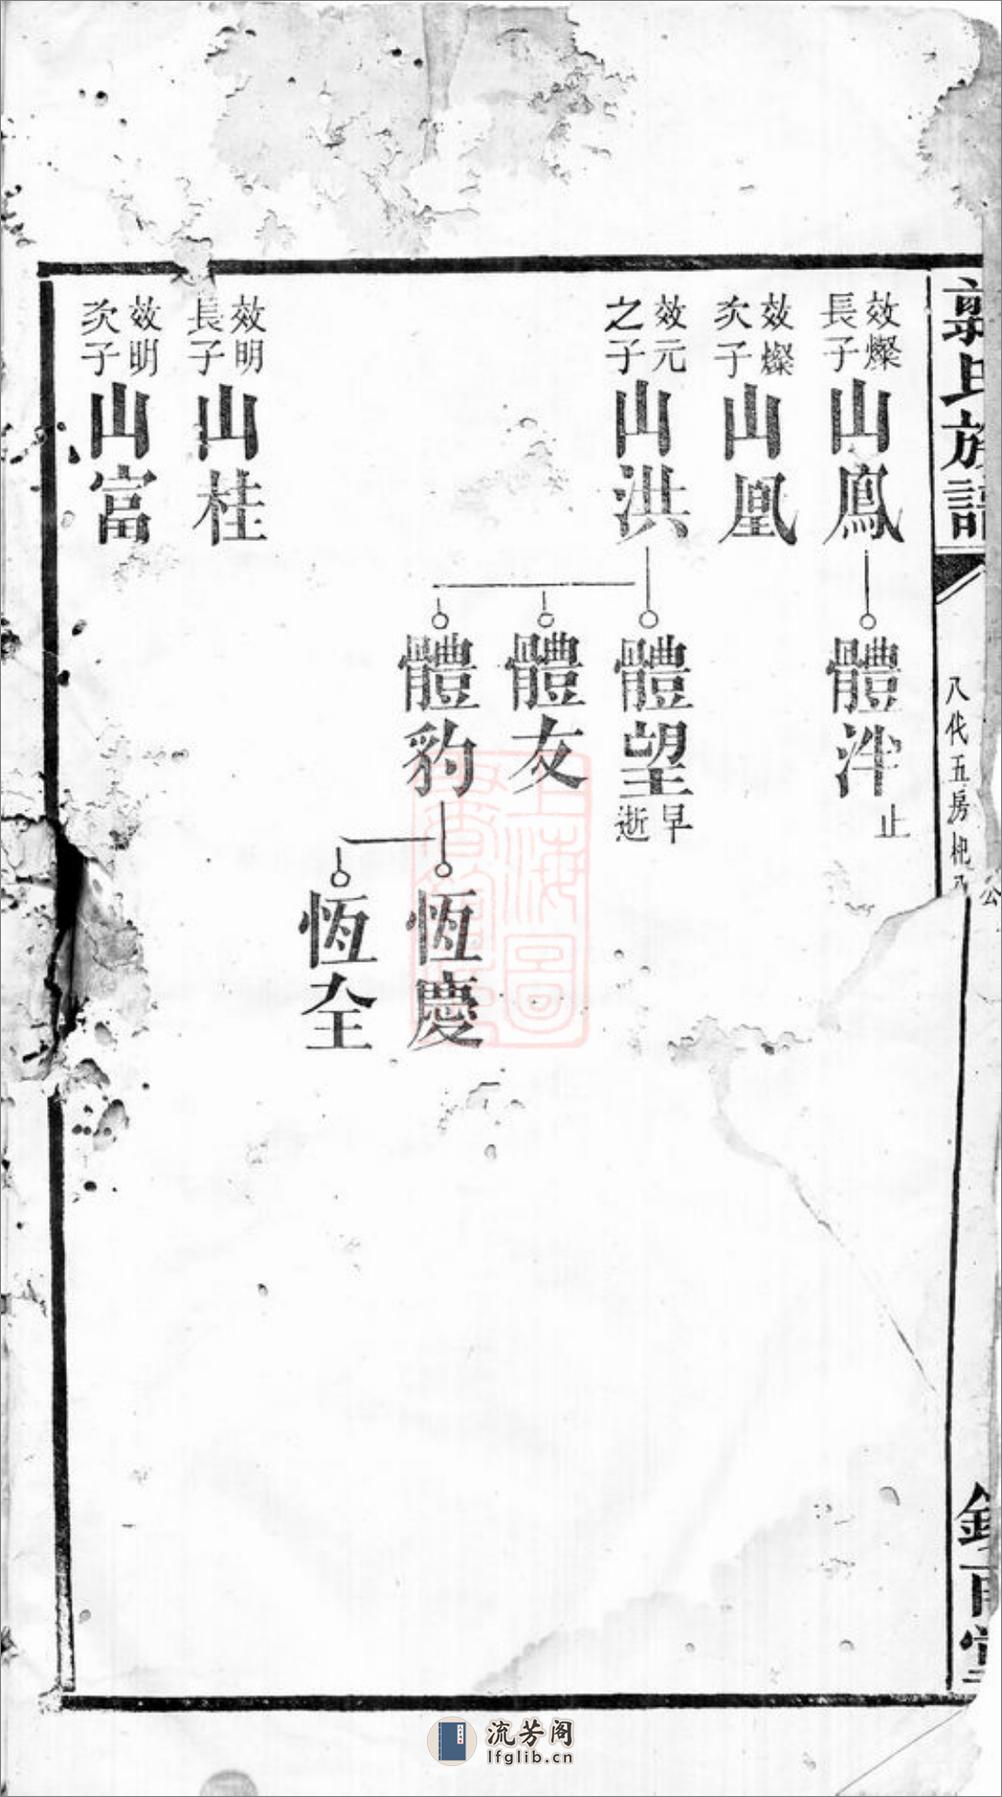 郭氏族譜
八代五房
公
效燦
長子
山鳳
體泮
止
效燦
次子
山凰
效元
之子
山洪
體望
早
逝
體友
體豹
恆慶
恆全
效明
長子
山桂
效明
次子
山富
上海圖
流芳阁
lfglib.cn